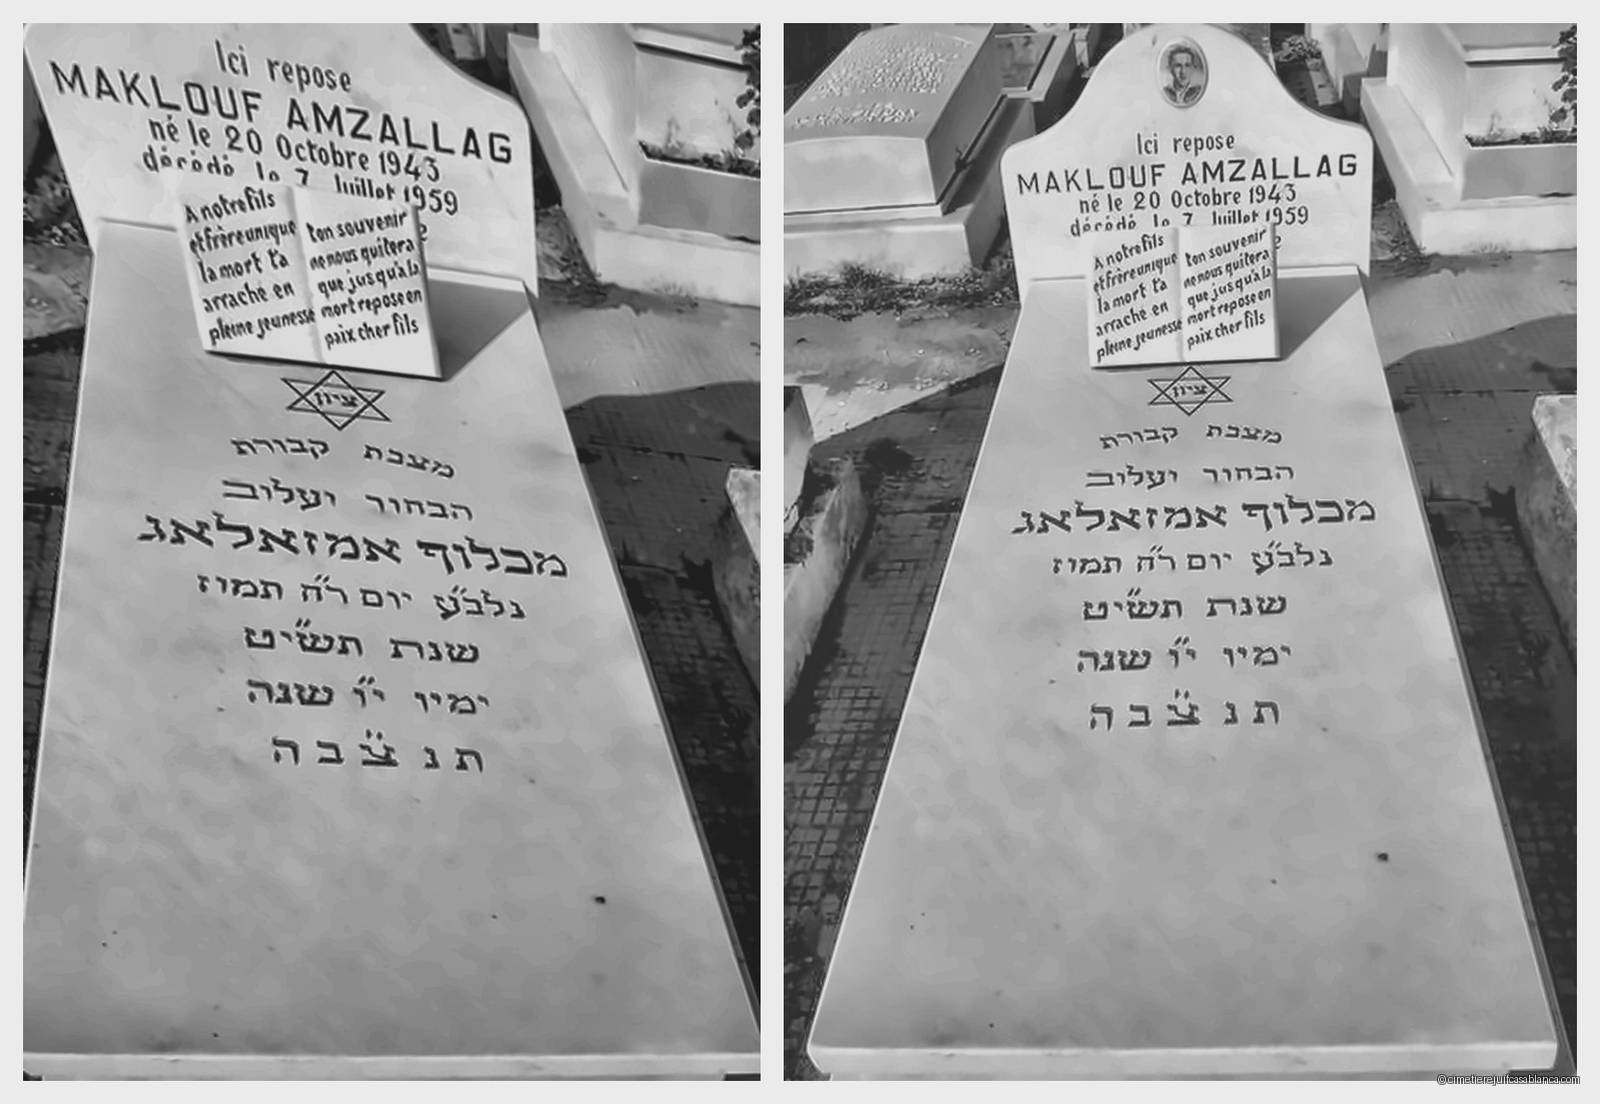 Ici repose
MAKLOUF AMZALLAG
né le 20 Octobre 1943
décédé le 7 Juillet 1959
A notre fils
et frère unique
la mort t'a
arraché en
pleine jeunesse
ton souvenir
ne nous quitera
que jusqu'à la
mort repose en
paix cher fils
ציון
מצבת קבורת
הבחור יעלוב
מכלוף אמזאלאג
נלב״ע יום ר״ח תמוז
שנת תשי״ט
ימיו י״ו שנה
ת נ צ״ ב ה
Ici repose
MAKLOUF AMZALLAG
né le 20 Octobre 1943
décédé le 7 Juillet 1959
A notre fils
et frère unique
la mort t'a
arraché en
pleine jeunesse
ton souvenir
ne nous quitera
que jusqu'à la
mort repose en
paix cher fils
ציון
מצבת קבורת
הבחור יעלוב
מכלוף אמזאלאג
נלב״ע יום ר״ח תמוז
שנת תשי״ט
ימיו י״ו שנה
ת נ צ״ ב ה
©cimetierejuifcasablanca.com